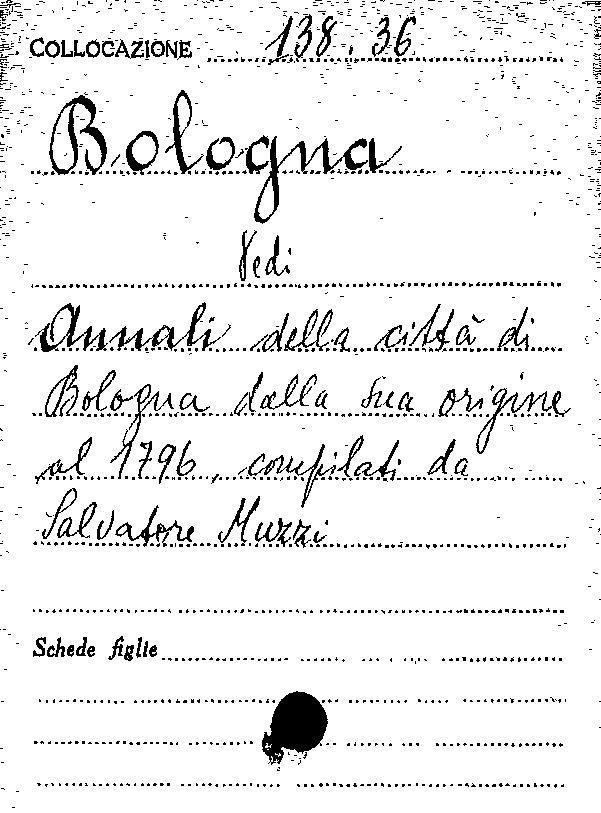 COLLOCAZIONE 138.36
Bologna
Vedi
Annali della città di
Bologna dalla sua origine
al 1796, compilati da
Salvatore Muzzi
Schede figlie